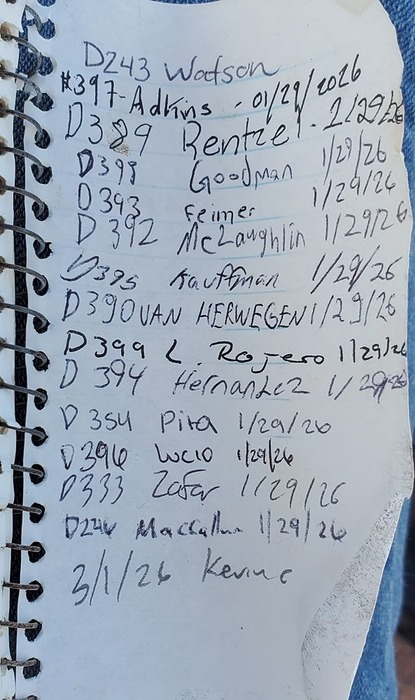 D243 Watson
#397-Adkins - 01/29/2026
D389 Rentzel - 1/29/26
D398 Goodman 1/29/26
D393 Feimer 1/29/26
D392 McLaughlin 1/29/26
D395 Kauffman 1/29/26
D390 VAN HERWEGEN 1/29/26
D399 L. Rojero 1/29/26
D394 Hernandez 1/29/26
D354 Pita 1/29/26
D396 Lucio 1/29/26
D333 Zafar 1/29/26
D246 1/29/26
3/1/26